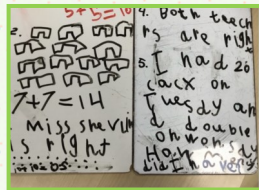 5+5=10
2.
7+7=14
Miss shevlin
is right
4. Both teach
rs are right
5. I had 20
cacx on
Tuesdy an
d double
on wonsdy
How m
did I have